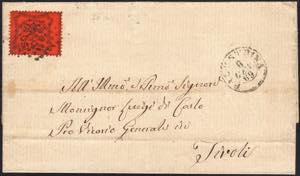 All' Illmo e Rmo Signore
Monsignor Luigi di Carlo
Pro Vicario Generale di
Tivoli
69